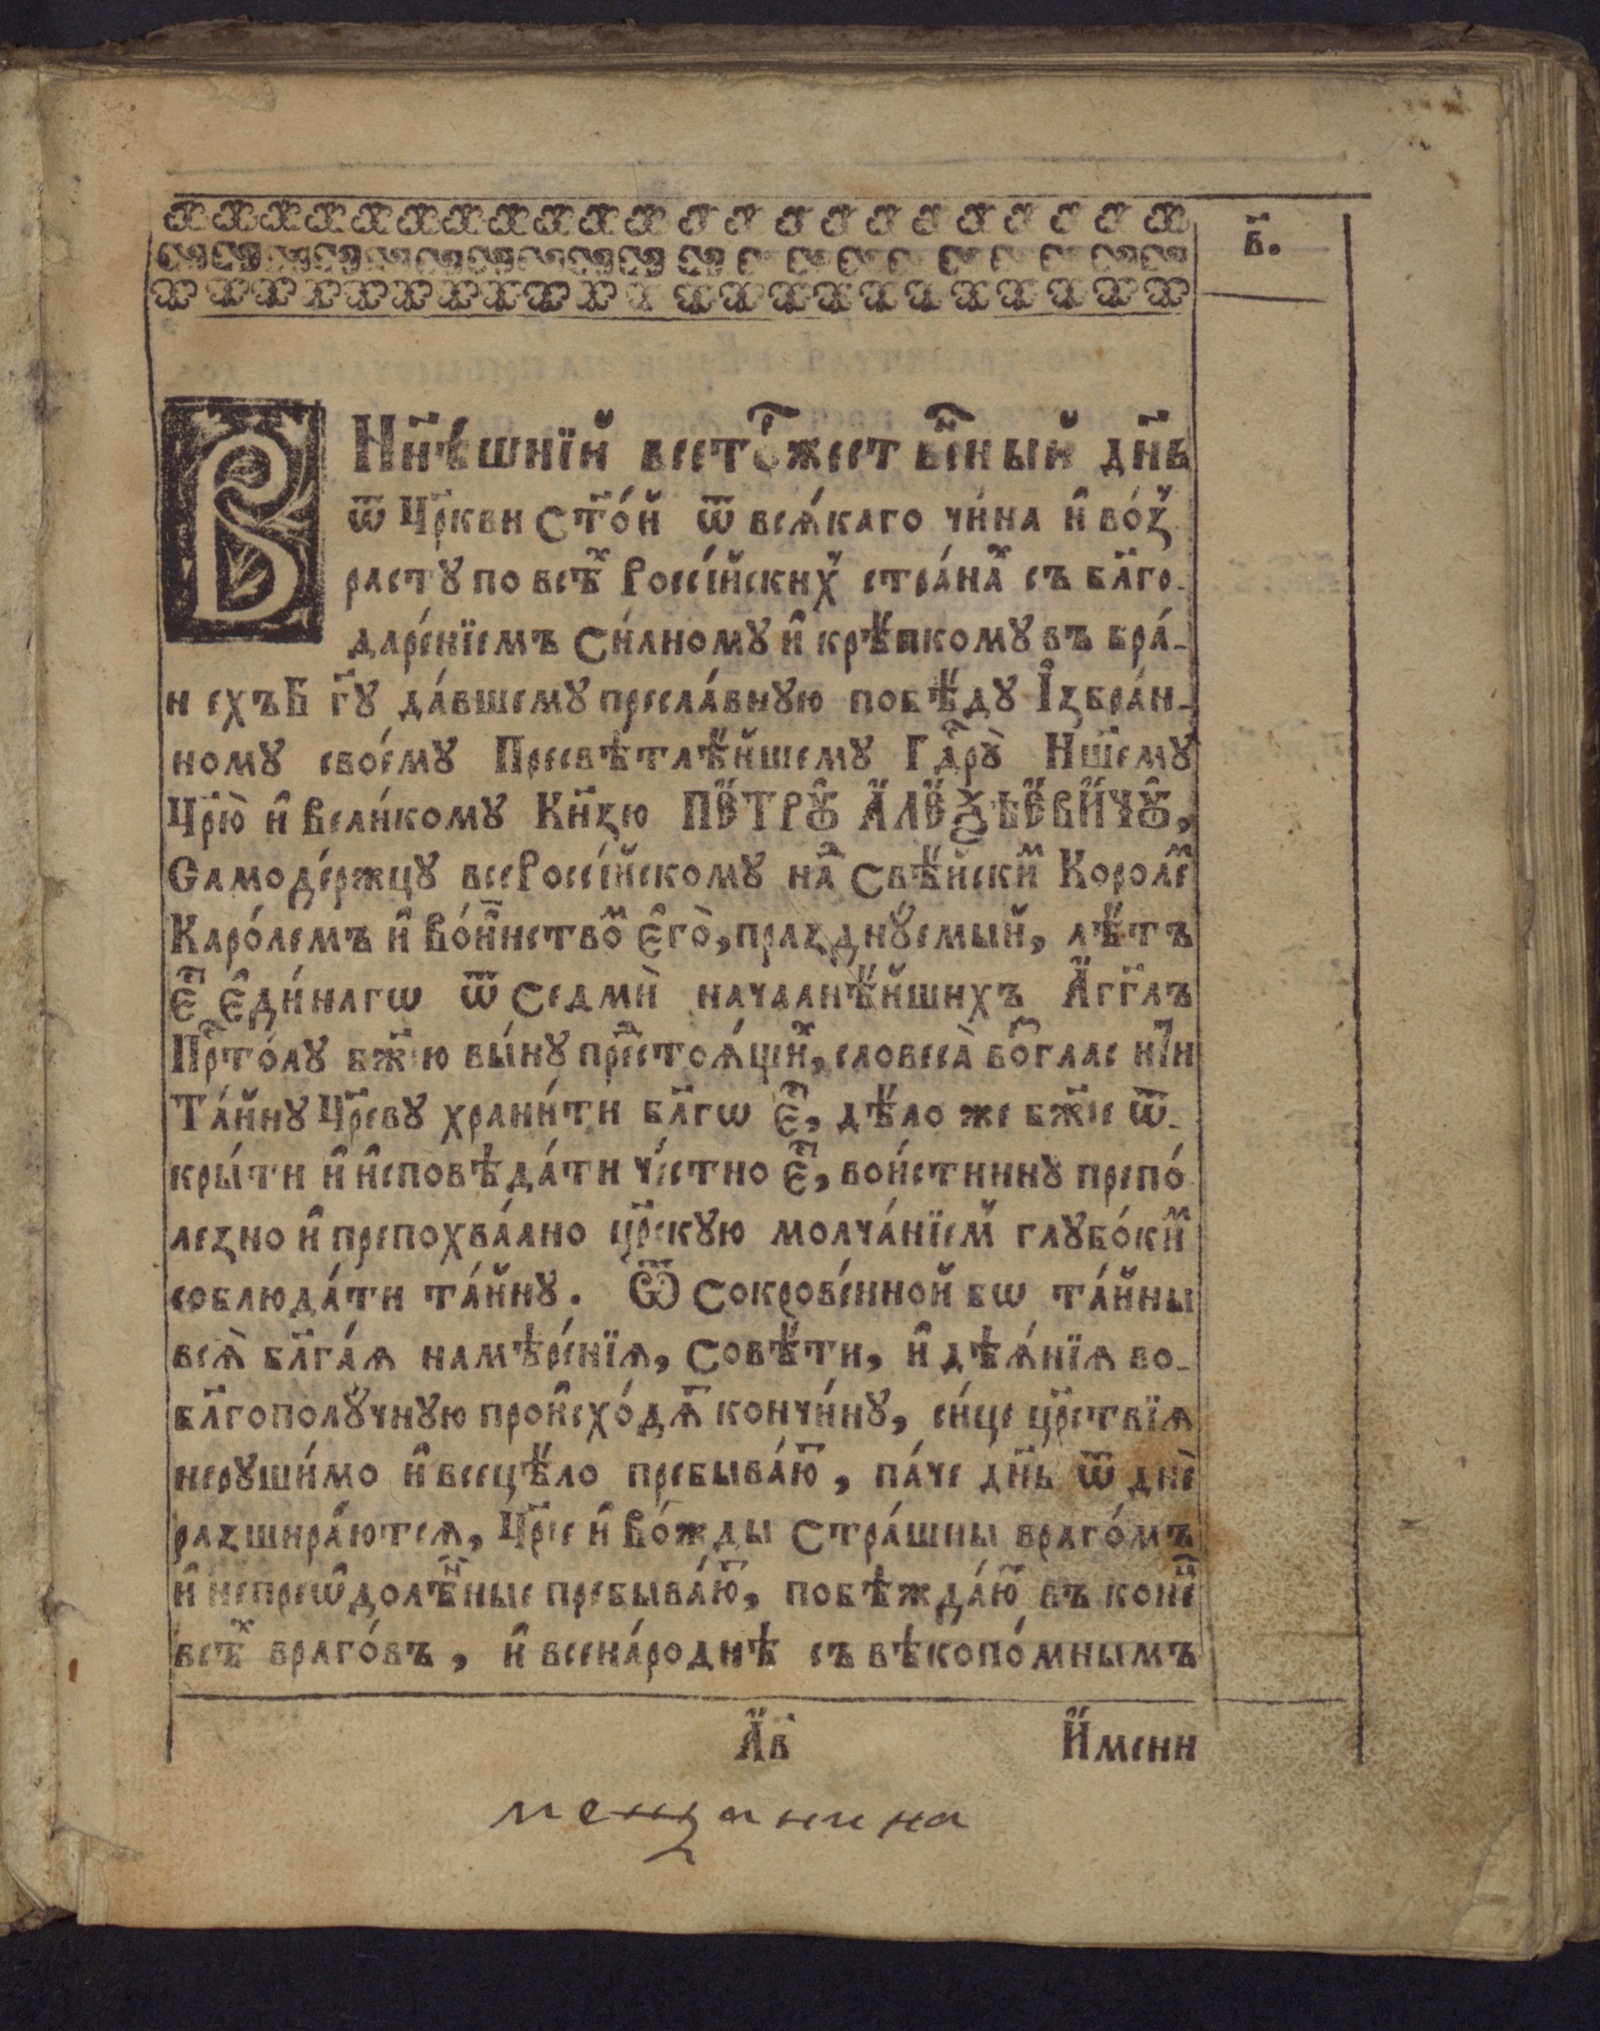 в҃.
В Нн҃ѣшнїй всето́жеств҃ный дн҃ь
ѿ Цр҃кви Ст҃о́й ѿ вся́каго чи́на и҆ во́з
расту по всѣ́х Россі́йских стра́нах съ бл҃го-
даре́нїемъ Си́лному и҆ крѣ́пкому въ бра́-
нехъ Б҃гу да́вшему пресла́вную побѣ́ду І҆збра́н-
ному своему̀ Пресвѣтлѣ́йшему Гд҃рю̀ Нш҃ему
Цр҃ю̀ и҆ Вели́кому Кн҃зю ПЕТРꙊ АЛЕѮЪЕВИЧꙊ,
Самоде́ржцу всеРоссі́йскому над Свѣ́йским Королем
Каро́лемъ и҆ Во́инством є҆гѡ̀, празднꙋ́емый, лѣ́тъ
є҆ст є҆ди́наго ѿ Седмѝ началнѣ́йшихъ А҆́гг҃лъ
Прⷭ҇то́лу бж҃ію вы́ну предстоя́щих, словеса̀ возгласи́ти
Та́йну Цр҃еву храни́ти бл҃го є҆ст, дѣ́ло же бж҃іе ѿ-
кры́ти и҆ и҆сповѣ́дати че́стно є҆ст, вои́стинну препо́
лезно и҆ препохва́лно цр҃скую молча́нїем глубо́ким
соблюда́ти та́йну. Ѿ Сокрове́нной бо та́йны
вся̀ бл҃га́я намѣ́ренїя, Совѣ́ти, и҆ дѣя́нїя во-
бл҃гополꙋ́чную происхо́дят кончи́ну, си́це цр҃ствїя
нерꙋши́мо и҆ всецѣ́ло пребыва́ют, па́че дн҃ь ѿ днѐ
разшира́ются, Цр҃іе и҆ Во́жды Стра́шны враго́мъ
и҆ непреѡдолѣ́нные пребыва́ют, побѣжда́ют въ конец
всѣ́х враго́въ, и҆ всена́роднѣ съ вѣкопо́мнымъ
А҆в И҆́мени
мещанина